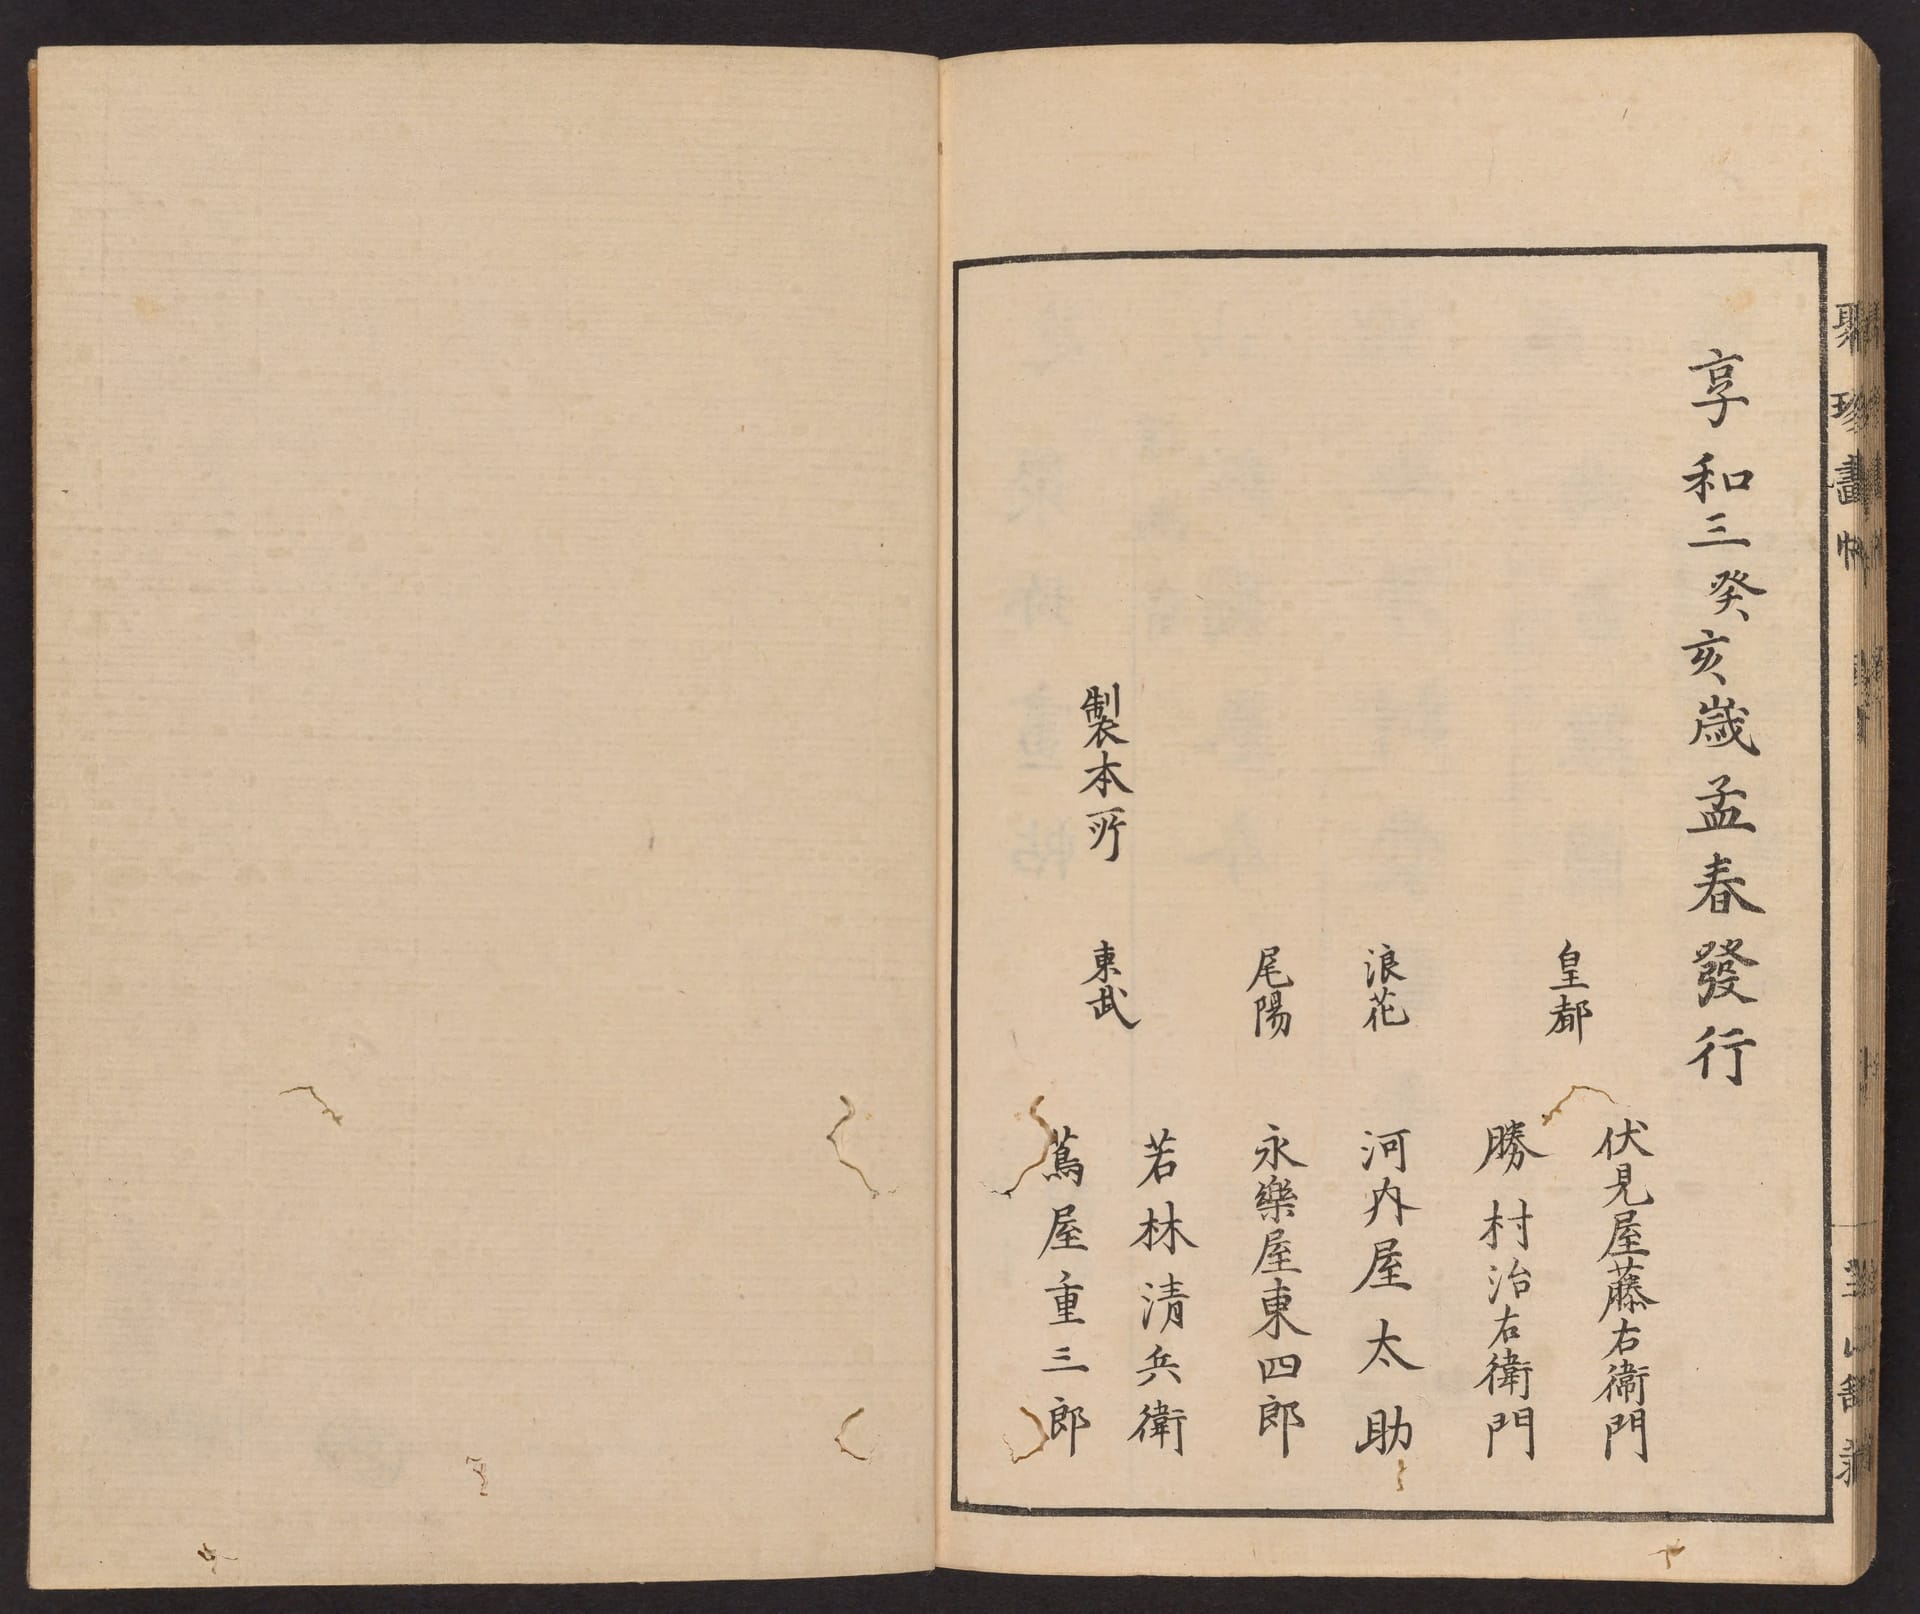 享和三癸亥歳孟春發行
皇都
伏見屋藤右衛門
勝村治右衛門
浪花
河内屋太助
尾陽
永樂屋東四郎
製本所
東武
若林清兵衛
蔦屋重三郎
聚珍畫帖